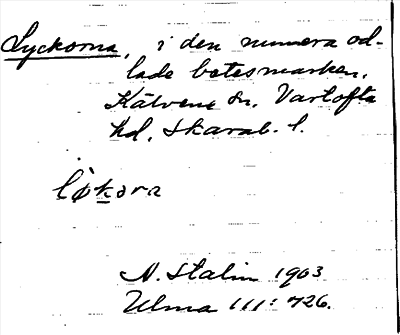 Lyckorna, i den numera od-
lade betesmarken.
Kälvene sn. Vartofta
hd. Skarab. l.
lø̀kora
N. Stalin 1903
Ulma 111: 726.